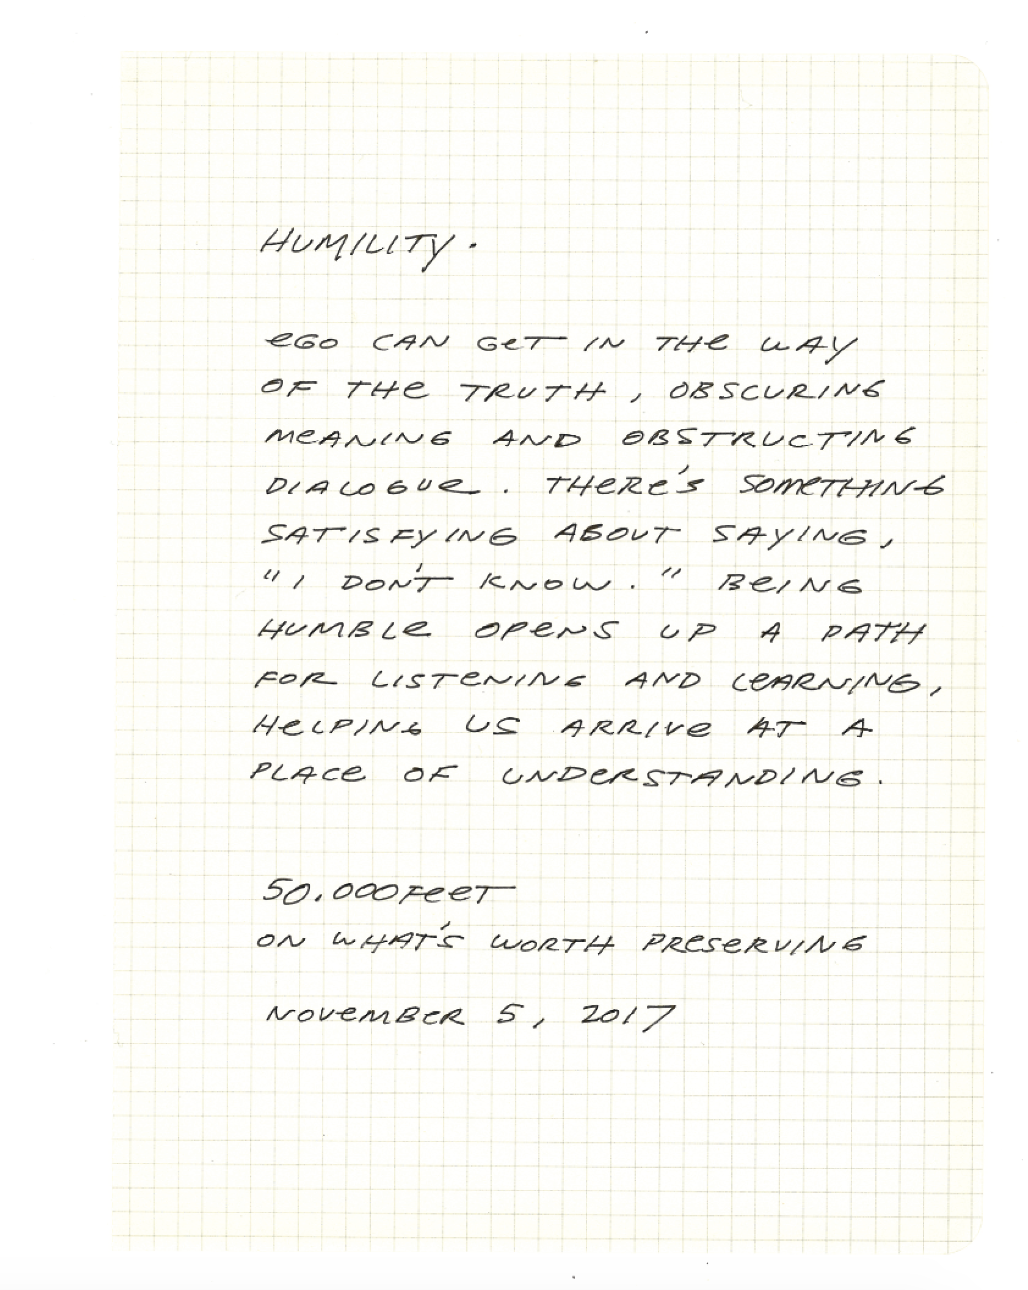 HUMILITY.
eGO CAN GeT IN THe WAY
OF THe TRUTH, OBSCURING
MeANING AND OBSTRUCTING
DIALOGUe. THeRe'S SOMeTHING
SATISFYING ABOUT SAYING,
"I DON'T KNOW." BeING
HUMBLe OPeNS UP A PATH
FOR LISTeNING AND LeARNING,
HeLPING US ARRIVe AT A
PLACe OF UNDeRSTANDING.
50,000FeeT
ON WHAT'S WORTH PReSeRVING
NOVeMBeR 5, 2017